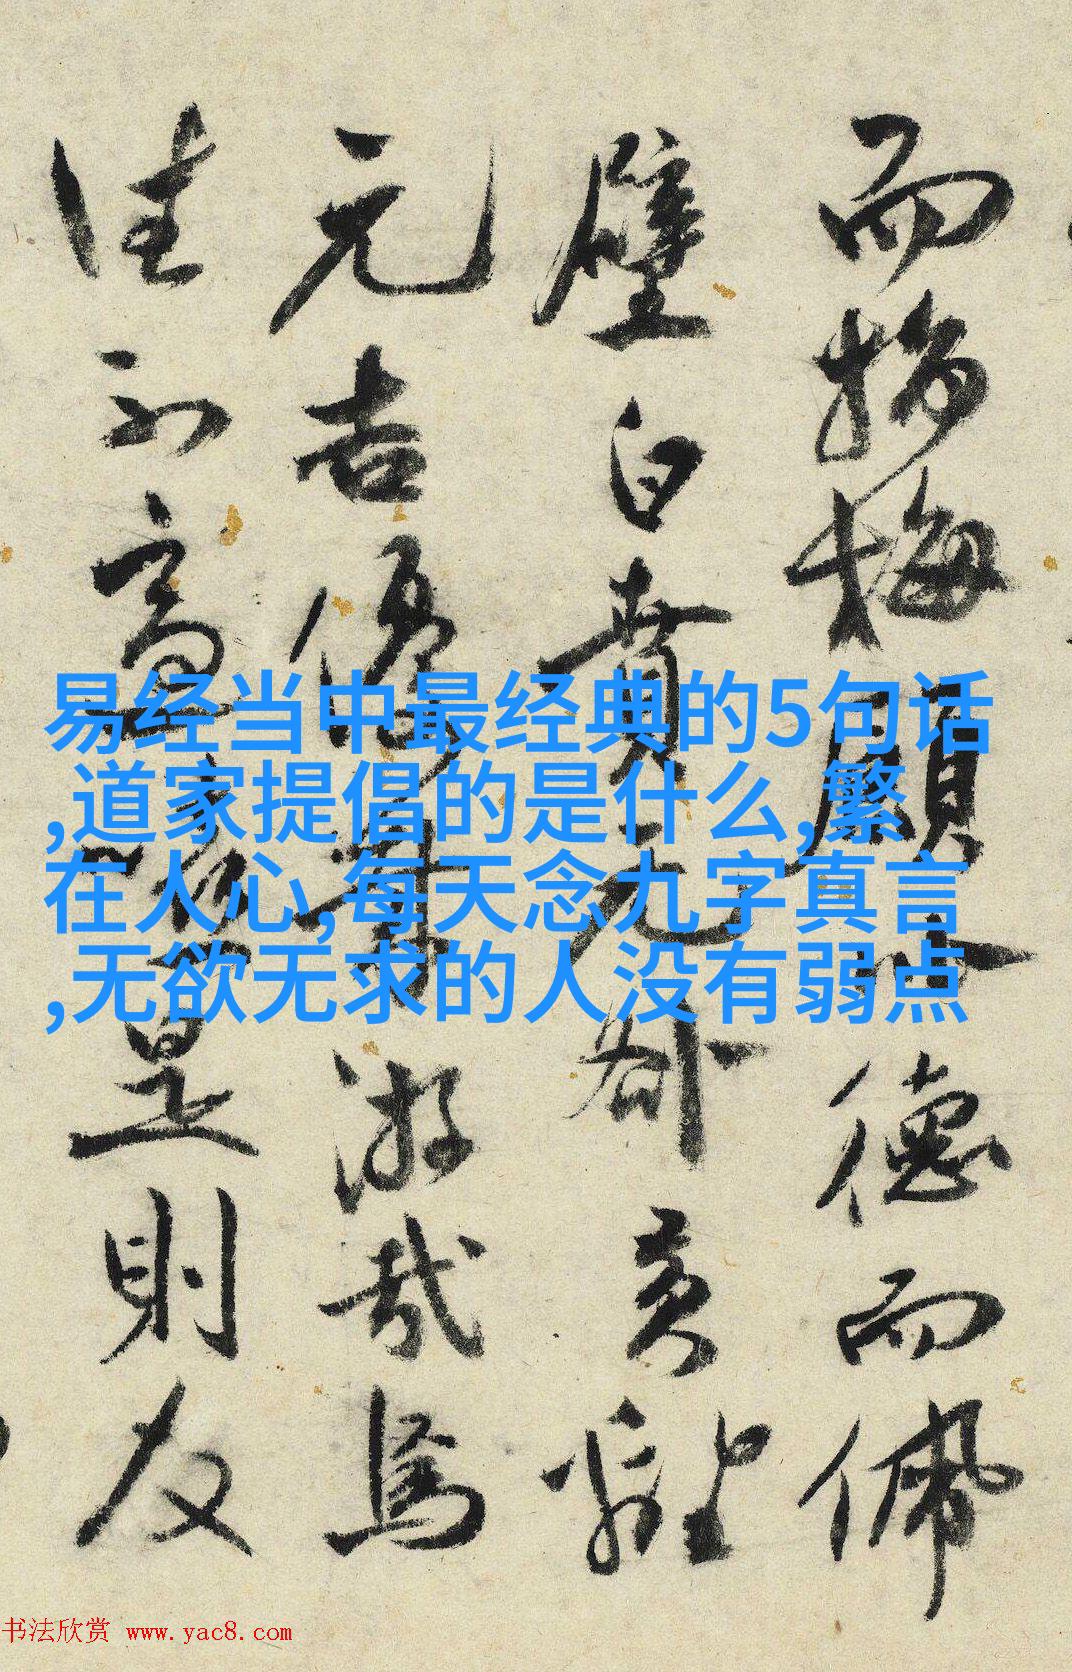 而揚梅
願
德而佩
璧白賁无
咎亥
元吉
游哉焉
往不
是則友
易经当中最经典的5句话
,道家提倡的是什么,繁
在人心,每天念九字真言
,无欲无求的人没有弱点
书法欣赏 www.yac8.com